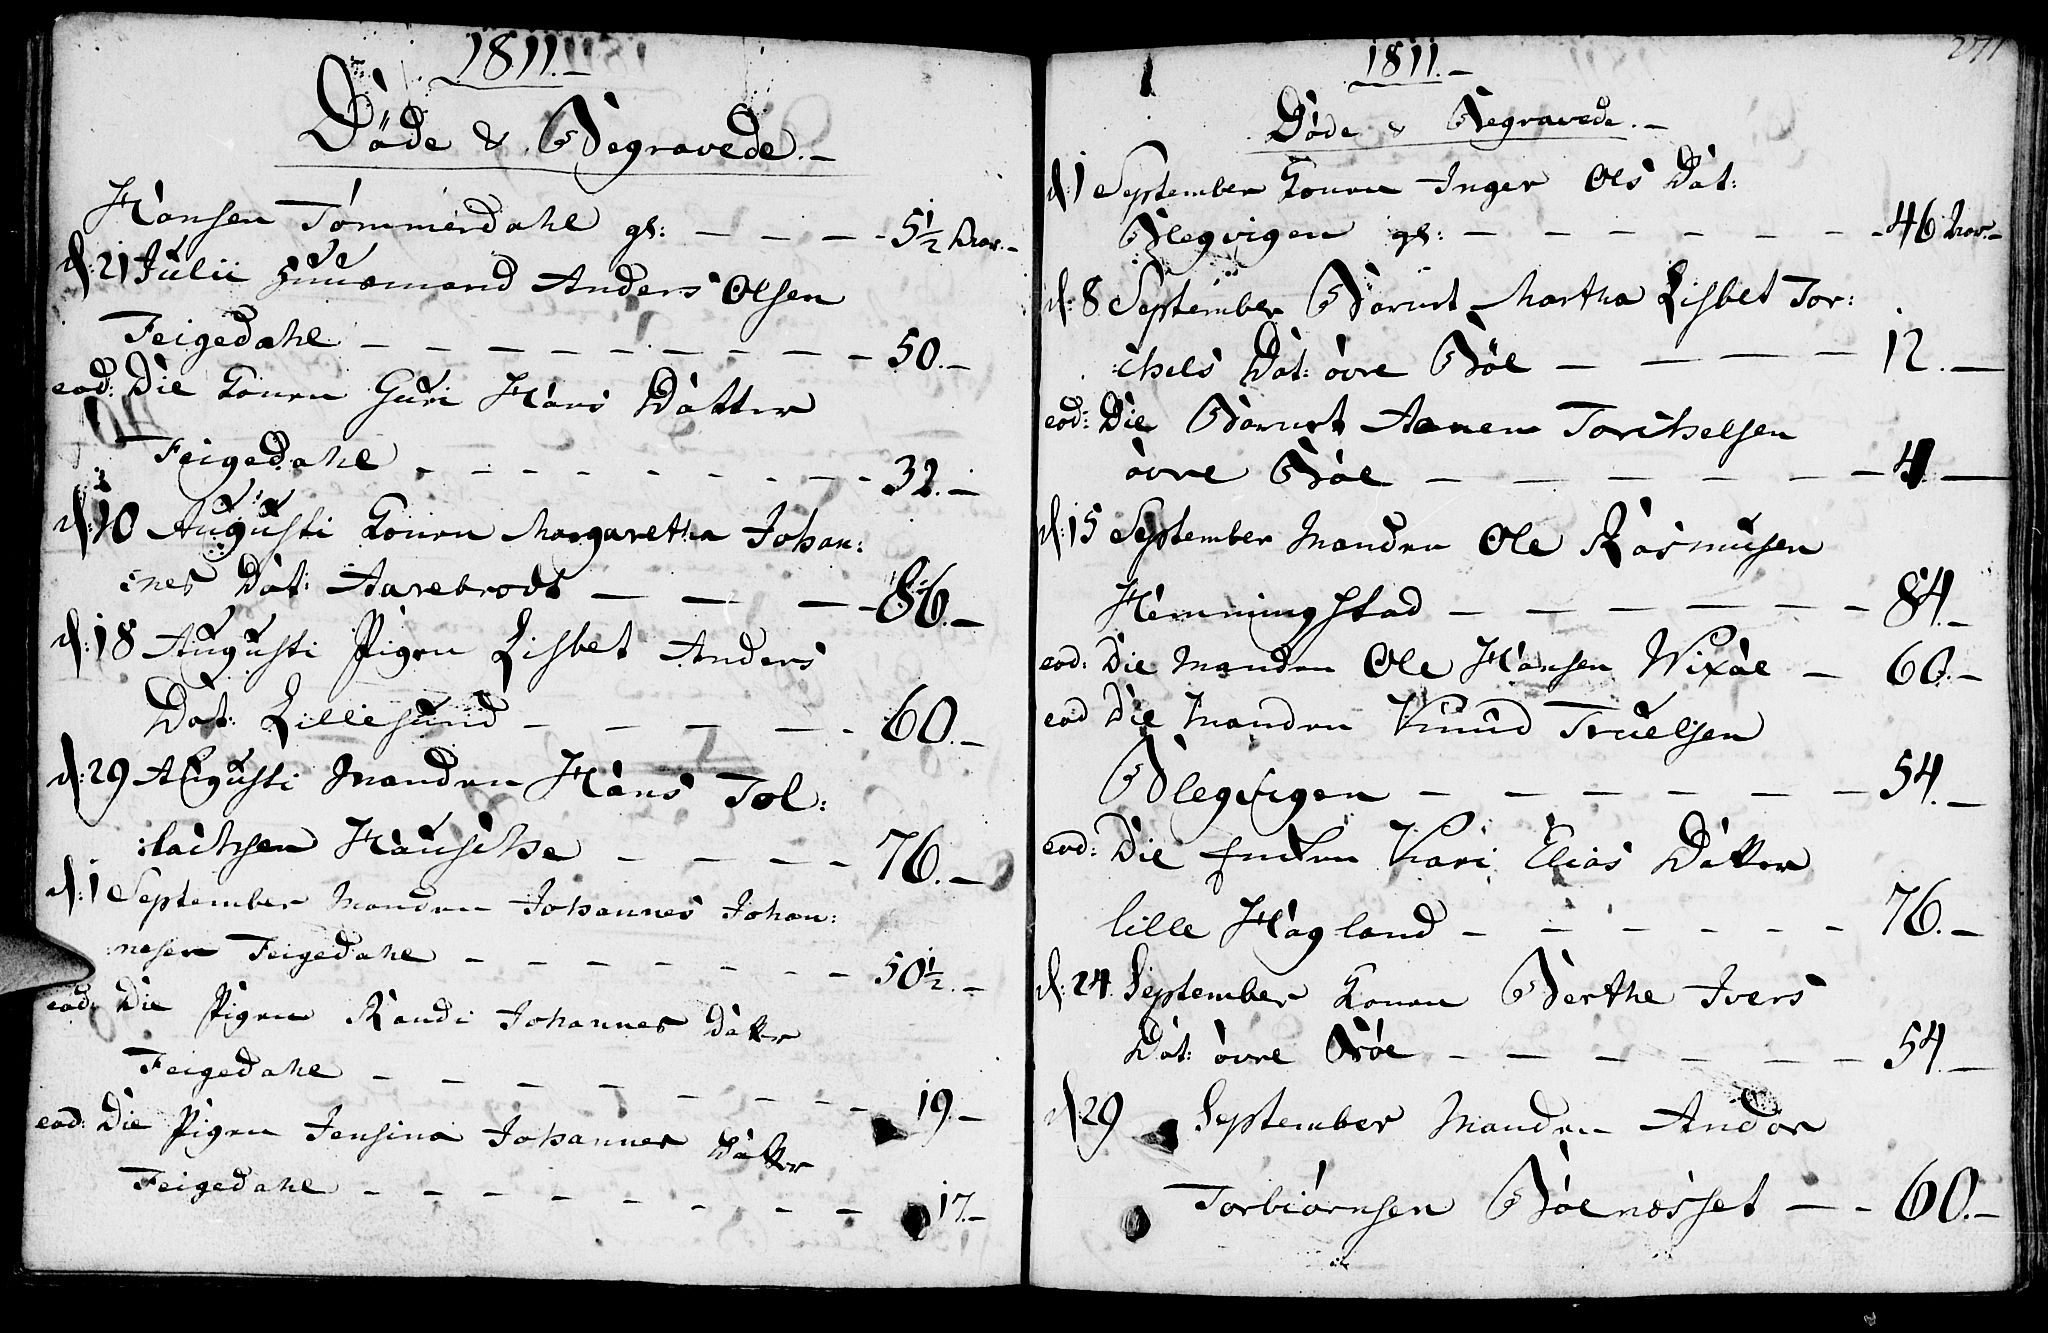 1811.-
Döde & Begravede.-
Hansen Tömmerdahl gl: - - - - 5½ Aar.-
d: 21 Julii Huusmand Anders Olsen
Feigedahl - - - - - - - - - 50.-
eod: Die Konen Guri Hans Datter
Feigedahl - - - - - - - - 32.-
d: 10 Augusti Konen Margaretha Johan:
:nes Dat: Aarebrodt - - - - 86.-
d: 18 Augusti Pigen Lisbet Anders
Dat: Lillesund - - - - - - 60.-
d: 29 Augusti Manden Hans Tol:
:lachsen Hausche - - - - - 76.-
d: 1 September Manden Johannes Johan:
:nesen Feigedahl - - - - - - - 50½.-
eod: Die Pigen Randi Johannes Datter
Feigedahl - - - - - - - - 19.-
eod: Die Pigen Jensina Johannes Datter
Feigedahl - - - - - - - - 17.-
271
1811.-
Döde & Begravede.-
d: 1 September Konen Inger Ols Dat:
Blegvigen gl: - - - - - - - 46 Aar.-
d: 8 September Barnet Martha Lisbet Tor:
:chels Dat: övre Böe - - - - - 12.-
eod: Die Barnet Aanen Torchelsen
övre Böe - - - - - - - 4.-
d: 15 September Manden Ole Rasmusen
Hemmingstad - - - - - - - 84.-
eod: Die Manden Ole Hansen Wixöe - 60.-
eod Die Manden Knud Truelsen
Blegvigen - - - - - - - 54.-
eod: Die Enken Kari Elias Datter
lille Hagland - - - - - - - 76.-
d: 24 September Konen Berthe Ivers
Dat: övre Böe - - - - - - 54.-
d: 29 September Manden Andor
Torbiörnsen Böenæsset - - 60.-